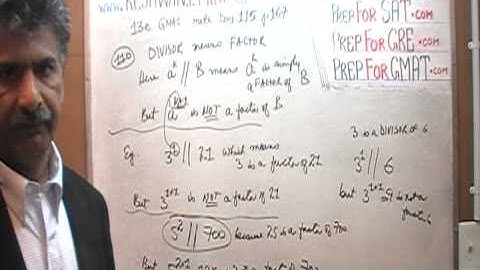 13e GMAT math
PREPFORSAT.com
PREPFORGRE.com
PREPFORGMAT.com
110
DIVISOR means FACTOR
Here a^k // B means a^k is simply
a FACTOR of B
But a^k+1 is NOT a factor of B
3 is a DIVISOR of 6
Eg. 3^1 // 21 which means
3 is a factor of 21
3^1 // 6
But 3^1+1 is NOT a factor of 21
but 3^1+1 = 9 is not a
factor 6
5^2 // 700 because 25 is a factor of 700
But